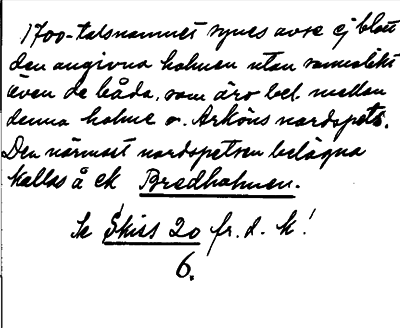 1700-talsnamnet synes avse ej blott
den angivna holmen utan sannolikt
även de båda, som äro bel. mellan
denna holme o. Arköns nordspets.
Den närmast nordspetsen belägna
kallas å ek Bredholmen.
Se Skiss 20 fr. d. k!
6.